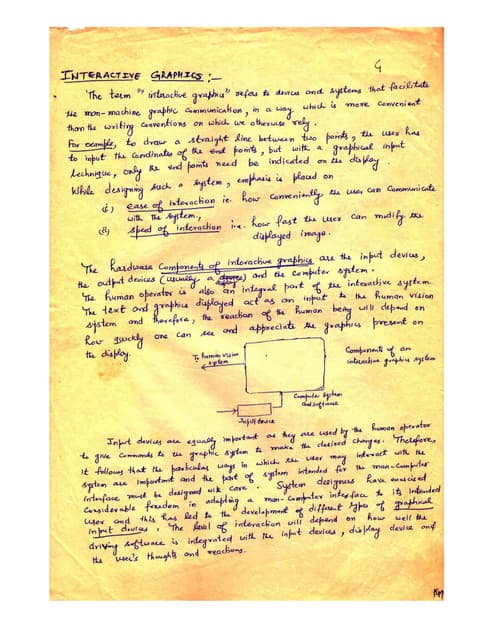 G
INTERACTIVE GRAPHICS :-
The term "interactive graphics" refers to devices and systems that facilitate
the man-machine graphic communication, in a way which is more convenient
than the writing conventions on which we otherwise rely.
For example, to draw a straight line between two points, the user has
to input the Cordinates of the end points, but with a graphical input
technique, only the end points need be indicated on the display.
While designing such a system, emphasis is placed on
(i) ease of interaction ie. how conveniently the user can Communicate
with the system.,
(ii) speed of interaction i.e. how fast the user can modify the
displayed image.
The hardware Components of interactive graphics are the input devices,
the output devices (usually a) and the Computer system.
The human operator is also an integral part of the interactive system.
The text and graphics displayed act as an input to the human vision
system and therefore, the reaction of the human being will depend on
how quickly one can see and appreciate the graphics present on
the display.
To human vision
system
Components of an
interactive graphics system
Computer System
and software
Input device
Input devices are equally important as they are used by the human operator
to give Commands to the graphic system to make the desired changes. Therefore,
it follows that the particular ways in which the user may interact with the
system are important and the part of system intended for the man-Computer
interface must be designed with care. System designers have exercised
Considerable freedom in adapting a man-Computer interface to its intended
user and this has led to the development of different types of graphical
input devices. The level of interaction will depend on how well the
driving software is integrated with the input devices, display device and
the user's thoughts and reactions.